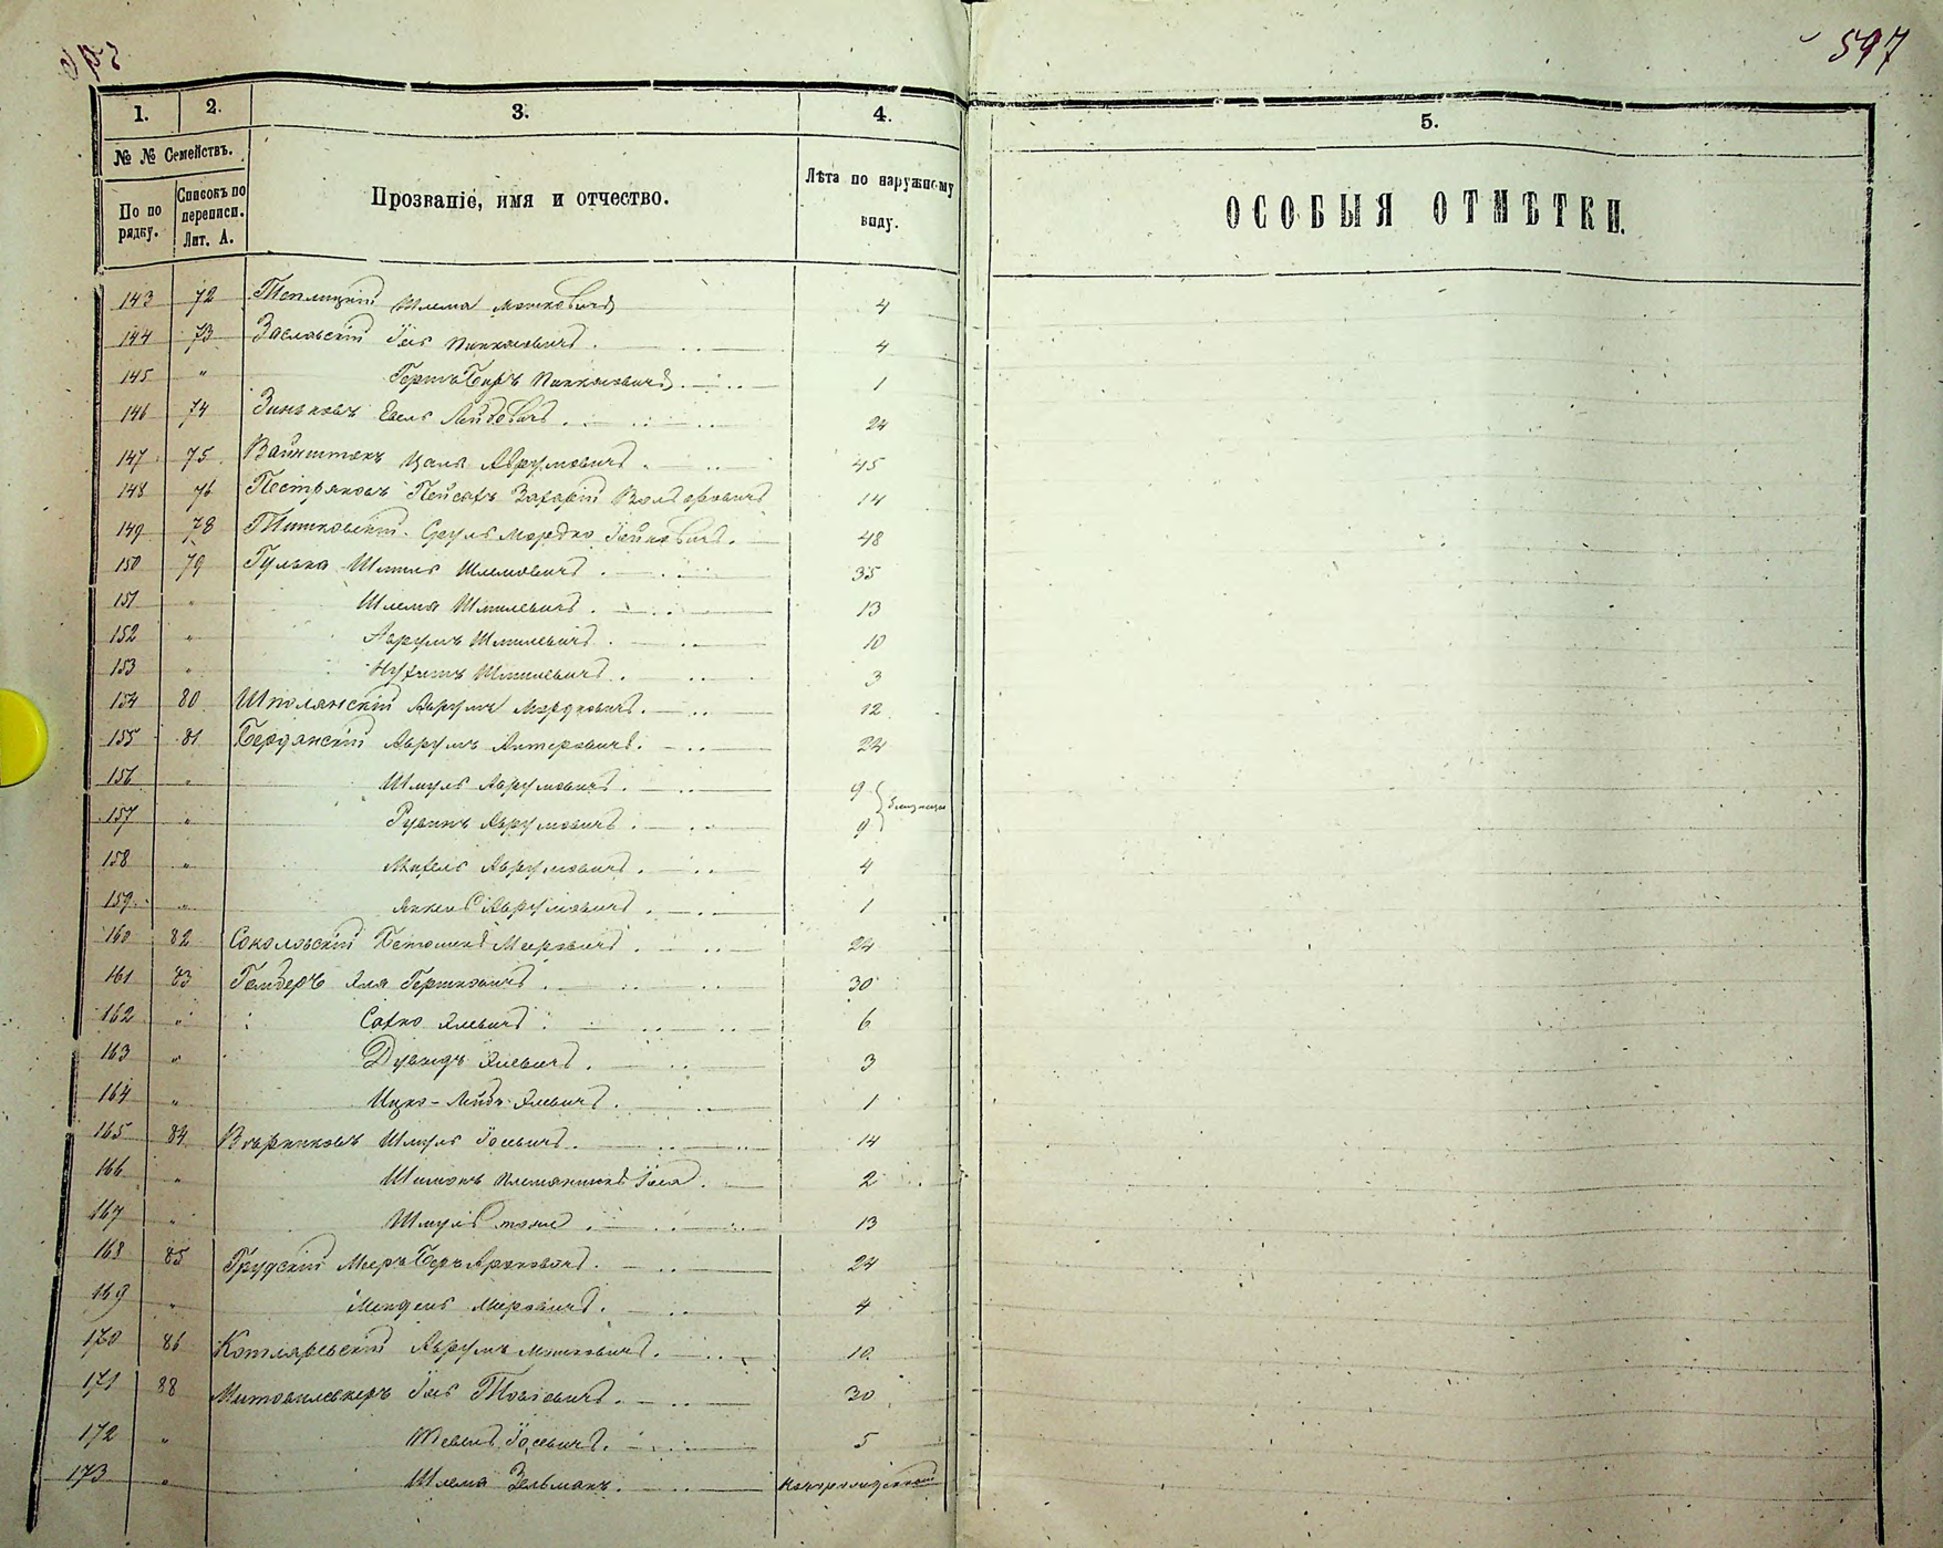 597
1. 2. 3. 4. 5.
№ № Семействъ.
По по рядку.
Списокъ по переписи. Лит. А.
Прозваніе, имя и отчество.
Лѣта по наружному виду.
ОСОБЫЯ ОТМѢТКИ.
143 72 Теплицкій Шлема Мошковичъ 4
144 73 Заславскій Іось Пинхасовичъ 4
145 " Гершъ Беръ Пинхасовичъ 1
146 74 Зиньковъ Евель Лейбовичъ 24
147 75 Вайнштокъ Цаля Аврумовичъ 45
148 76 Пестряковъ Пейсахъ Захарій Вольфовичъ 14
149 78 Тишковскій Сруль Мордко 48
150 79 Гулько Шмиль Шлемовичъ 35
151 " Шлема Шмилевичъ 13
152 " Аврумъ Шмилевичъ 10
153 " Нухимъ Шмилевичъ 3
154 80 Шполянскій Аврумъ Мордковичъ 12
155 81 Бердянскій Аврумъ Алтеровичъ 24
156 " Шмуль Аврумовичъ 9
близнецы
157 " Рувинъ Аврумовичъ 9
158 " Михель Аврумовичъ 4
159 " Янкель Аврумовичъ 1
160 82 Соколовскій Мееровичъ 24
161 83 Гелберъ Эля Гершковичъ 30
162 " Сахно Элевичъ 6
163 " Дувидъ Элевичъ 3
164 " Ицко-Лейбъ Элевичъ 1
165 84 Шмуль Іосевичъ 14
166 " Шимонъ племянникъ Іося 2
167 " Шмуль тоже 13
168 85 Грудскій Мееръ Беръ Ароновичъ 24
169 " Мендель Мееровичъ 4
170 86 Котляревскій Аврумъ Мошковичъ 10
171 88 Іось Товіовичъ 30
172 " Зевель Іосевичъ 5
173 " Шлема Зельманъ новорожденный